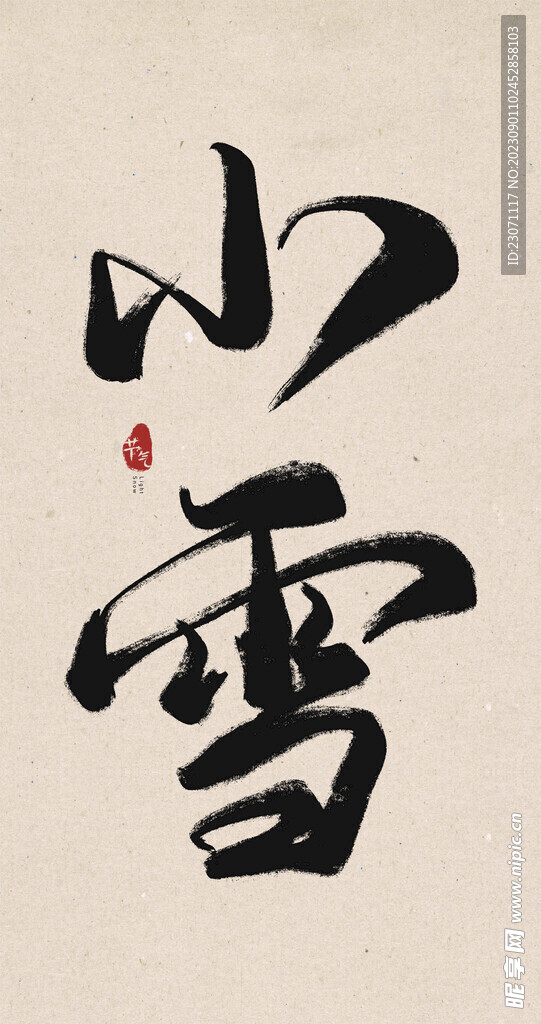 小
雪
节气
Light
Snow
ID:23071117 NO:20230901102452858103
昵享网 www.nipic.cn